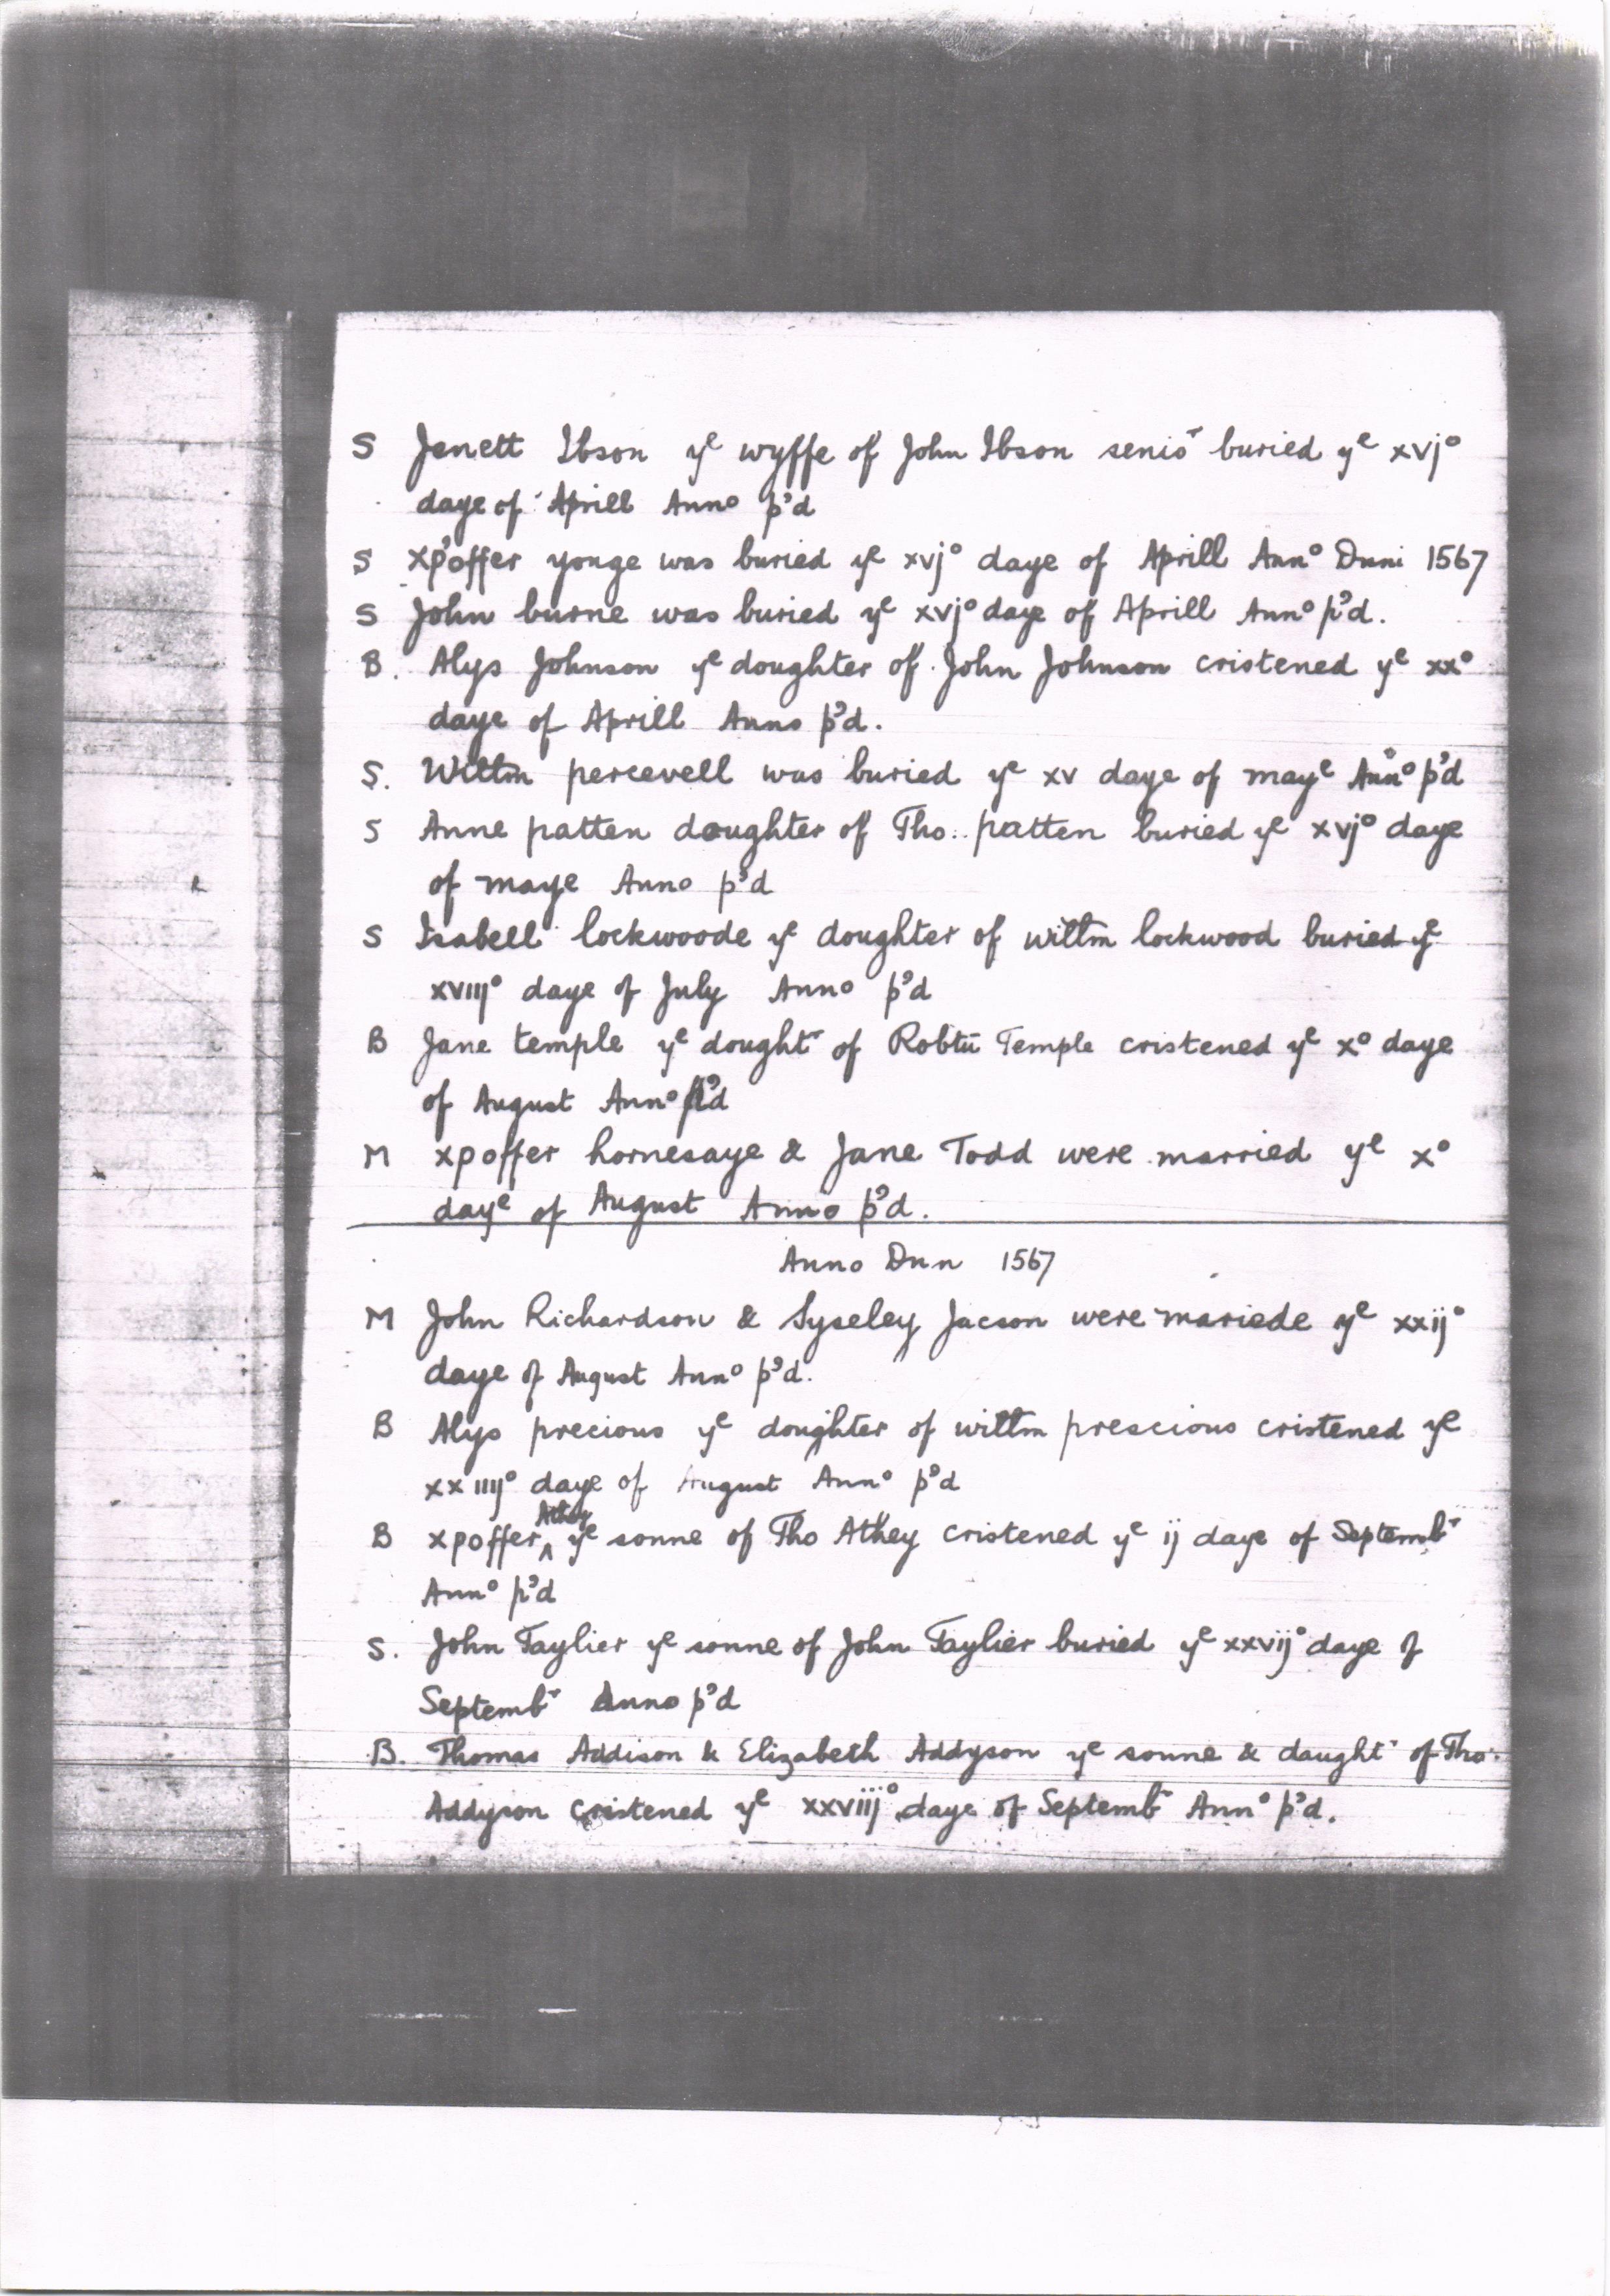 S Jenett Ibson yᵉ wyffe of John Ibson senioʳ buried yᵉ xvjº
daye of Aprill Annº p'd
S xp'offer yonge was buried yᵉ xvjº daye of Aprill Annº Dnni 1567
S John burne was buried yᵉ xvjº daye of Aprill Annº p'd.
B. Alys Johnson yᵉ doughter of John Johnson cristened yᵉ xxº
daye of Aprill Anno p'd.
S. Willm percevell was buried yᵉ xv daye of mayᵉ Annº p'd
S Anne patten doughter of Tho. patten buried yᵉ xvjº daye
of maye Anno p'd
S Isabell lockwoode yᵉ doughter of willm lockwood buried yᵉ
xviijº daye of July Annº p'd
B Jane temple yᵉ doughtʳ of Robtū Temple cristened yᵉ xº daye
of August Annº p'd
M xpoffer hornesaye & Jane Todd were married yᵉ xº
dayᵉ of August Anno p'd.
Anno Dnn 1567
M John Richardson & Syseley Jacson were mariede yᵉ xxijº
daye of August Annº p'd.
B Alys precious yᵉ doughter of willm prescious cristened yᵉ
xxiiijº daye of August Annº p'd
B xpoffer ^Athey yᵉ sonne of Tho Athey cristened yᵉ ij daye of Septembʳ
Annº p'd
S. John Taylier yᵉ sonne of John Taylier buried yᵉ xxvijº daye of
Septembʳ Anno p'd
B. Thomas Addison & Elizabeth Addyson yᵉ sonne & daughtʳ of Tho.
Addyson cristened yᵉ xxviijº daye of Septembʳ Annº p'd.